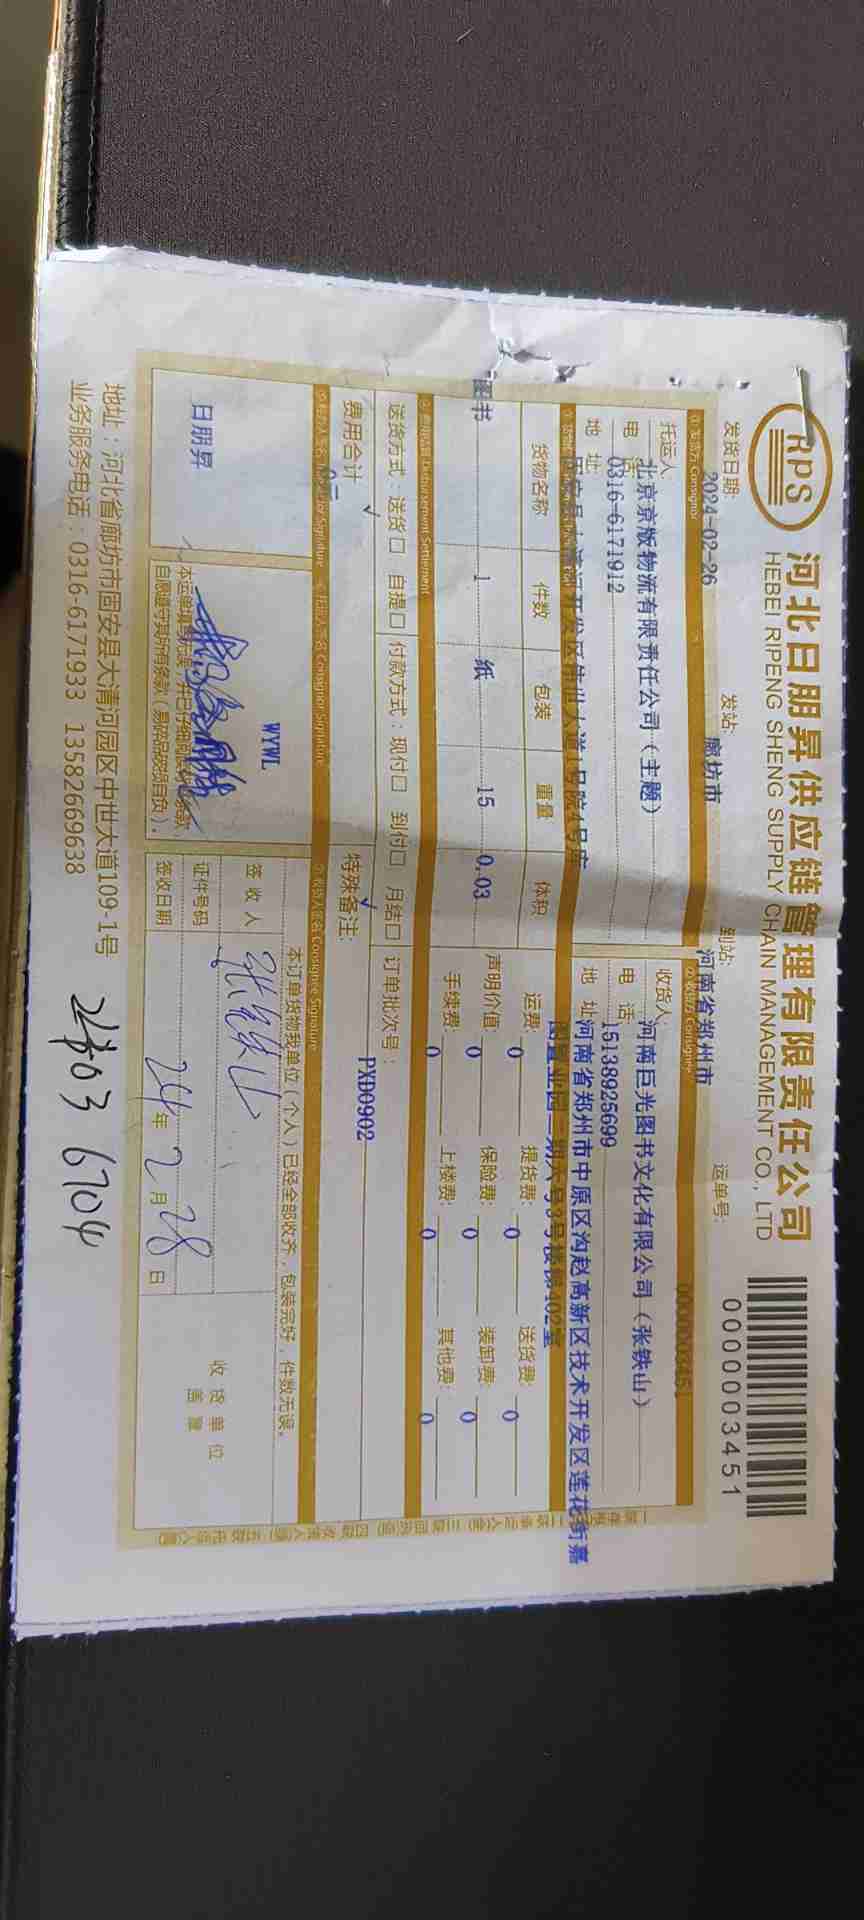 RPS
河北日朋昇供应链管理有限责任公司
HEBEI RIPENG SHENG SUPPLY CHAIN MANAGEMENT CO., LTD
0000003451
发货日期: 2024-02-26 发站: 廊坊市 到站: 河南省郑州市 运单号:
0000003451
①发货方 Consignor
②收货方 Consignee
托运人: 北京京版物流有限责任公司（主题）
电 话 0316-6171912
地 址
开发区伟世大道1号院4号库
收货人: 河南巨光图书文化有限公司（张铁山）
电 话: 15138925699
地 址 河南省郑州市中原区沟赵高新区技术开发区莲花街嘉
图置业园二期六号3号楼梯402室
货物名称 件数 包装 重量 体积
图书 1 纸 15 0.03
运费: 0 提货费: 0 送货费: 0
声明价值: 0 保险费: 0 装卸费: 0
手续费: 0 上楼费: 0 其他费: 0
Disbursement Settlement
送货方式: 送货□ 自提□ 付款方式: 现付□ 到付□ 月结□ 订单批次号:
PXD0902
费用合计 特殊备注:
Consignor Signature
Consignee Signature
日朋昇
WYWL
本订单货物我单位（个人）已经全部收齐，包装完好，件数无误。
签收人 张铁山
证件号码
签收日期 24年2月28日
收货单位
盖章
地址：河北省廊坊市固安县大清河园区中世大道109-1号
业务服务电话：0316-6171933 13582669638
6704